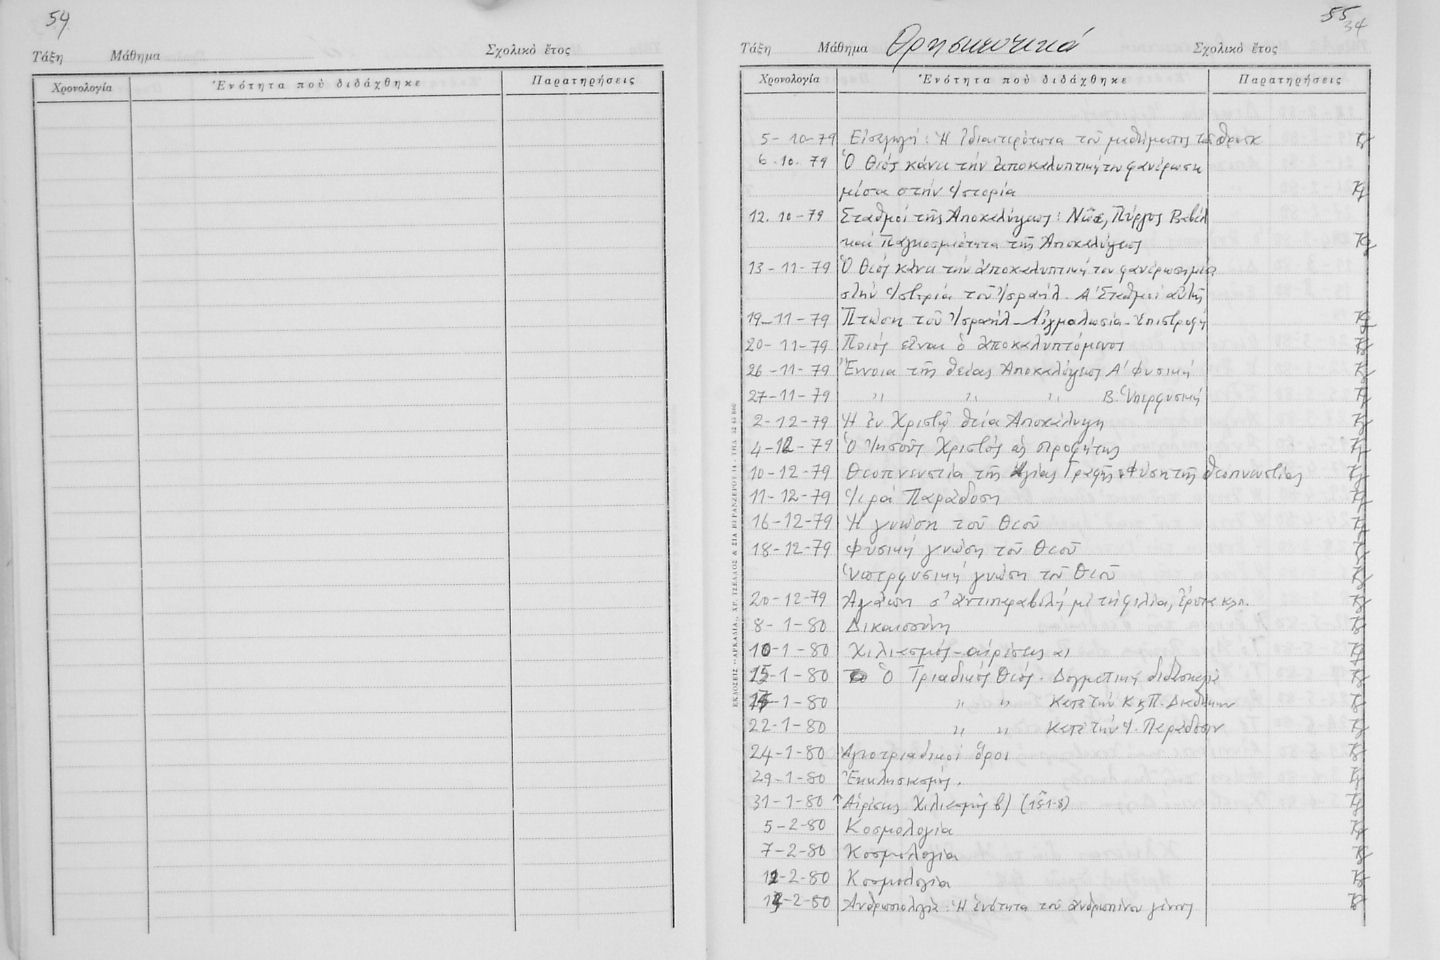 54
Τάξη Μάθημα Σχολικὸ ἔτος
Χρονολογία Ἑνότητα ποὺ διδάχθηκε Παρατηρήσεις
55
34
Τάξη Μάθημα Θρησκευτικά Σχολικὸ ἔτος
Χρονολογία Ἑνότητα ποὺ διδάχθηκε Παρατηρήσεις
5-10-79 Εἰσαγωγή: Ἡ ἰδιαιτερότητα τοῦ μαθήματος τῶν θρησκ
6-10-79 Ὁ Θεός κάνει τήν ἀποκαλυπτική του φανέρωση
μέσα στήν Ἱστορία
12.10-79 Σταθμοί τῆς Ἀποκαλύψεως: Νῶε, Πύργος Βαβέλ
καί παγκοσμιότητα τῆς Ἀποκαλύψεως
13-11-79 Ὁ Θεός κάνει τήν ἀποκαλυπτική του φανέρωση μέσα
στήν Ἱστορία τοῦ Ἰσραήλ. Α' Σταθμοί αὐτῆς
19-11-79 Πτώση τοῦ Ἰσραήλ-Αἰχμαλωσία-Ἐπιστροφή
20-11-79 Ποιός εἶναι ὁ ἀποκαλυπτόμενος
26-11-79 Ἔννοια τῆς θείας Ἀποκαλύψεως Α' Φυσική
27-11-79 " " " Β. Ὑπερφυσική
2-12-79 Ἡ ἐν Χριστῷ θεία Ἀποκάλυψη
4-12-79 Ὁ Ἰησοῦς Χριστός ὡς προφήτης
10-12-79 Θεοπνευστία τῆς Ἁγίας Γραφῆς. Φύση τῆς θεοπνευστίας
11-12-79 Ἱερά Παράδοση
16-12-79 Ἡ γνώση τοῦ Θεοῦ
18-12-79 Φυσική γνώση τοῦ Θεοῦ
Ὑπερφυσική γνώση τοῦ Θεοῦ
20-12-79 Ἀγάπη σ' ἀντιπαραβολή μέ τή φιλία, ἔρωτα κλπ.
8-1-80 Δικαιοσύνη
10-1-80 Χιλιασμός-αἱρέσεις α)
15-1-80 Ὁ Τριαδικός Θεός. Δογματική διδασκαλία
-1-80 " " Κατά τήν Κ κ Π. Διαθήκην
22-1-80 " " Κατά τήν Ἱ. Παράδοσιν
24-1-80 Ἁγιοτριαδικοί ὅροι
29-1-80 Ἐκκλησιασμός.
31-1-80 Αἱρέσεις Χιλιασμός β) (
5-2-80 Κοσμολογία
7-2-80 Κοσμολογία
12-2-80 Κοσμολογία
-2-80 Ἀνθρωπολογία: Ἡ ἑνότητα τοῦ ἀνθρωπίνου γένους